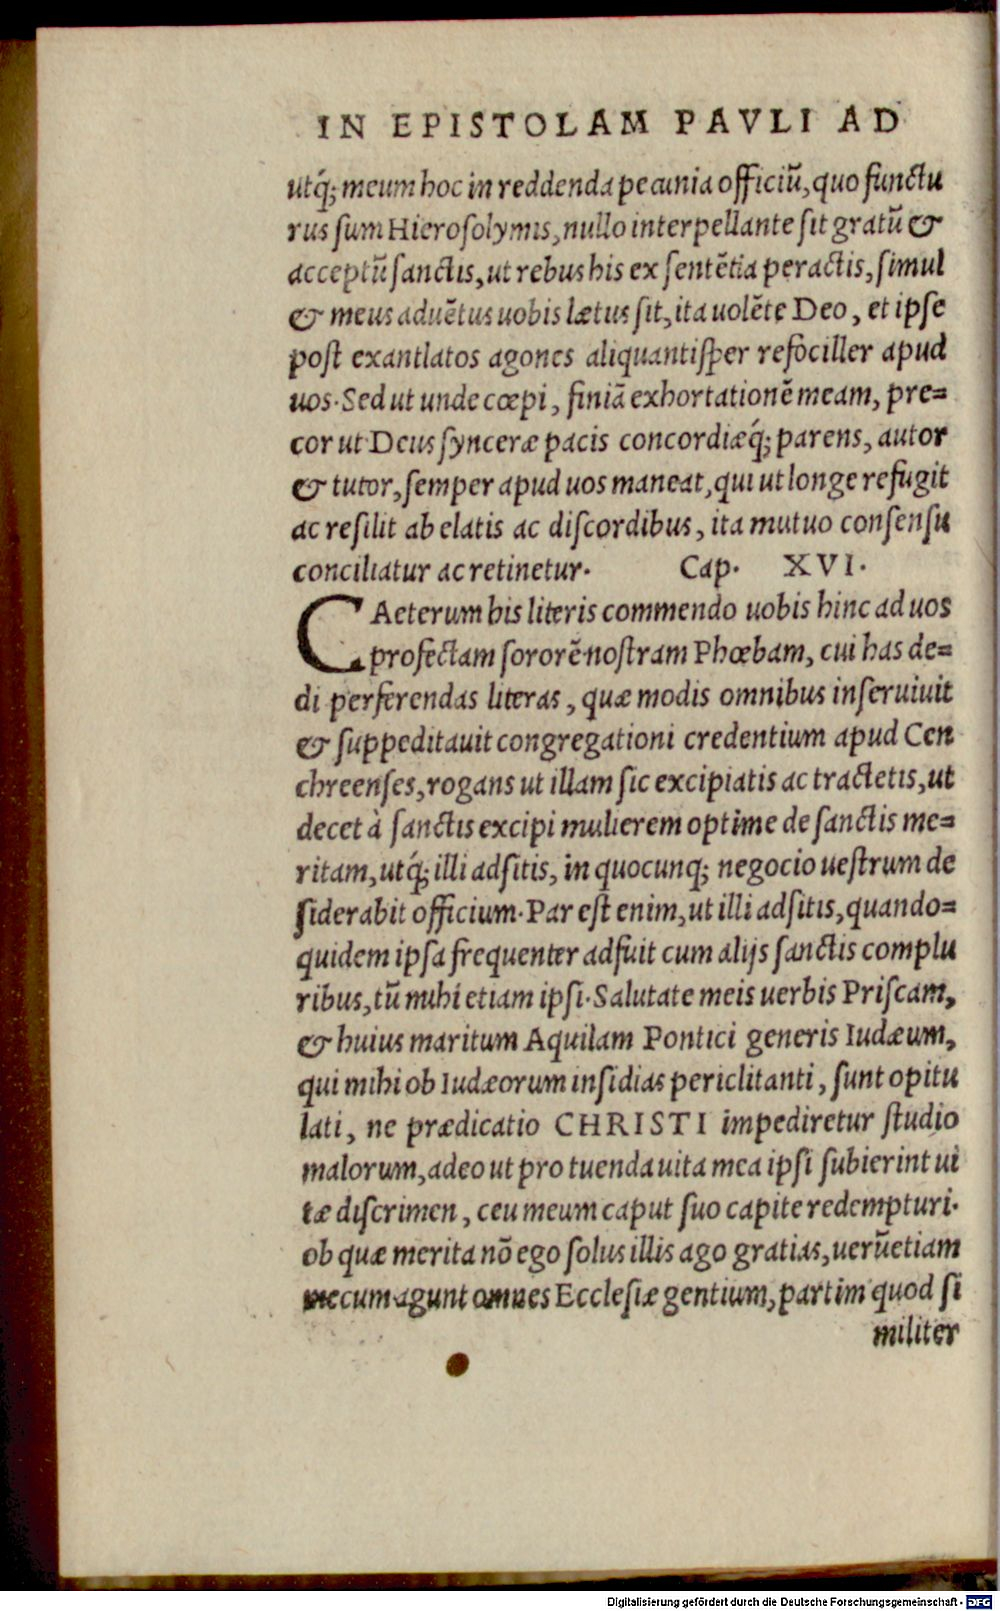 IN EPISTOLAM PAVLI AD
utq́; meum hoc in reddenda pecunia officiũ, quo functu
rus sum Hierosolymis, nullo interpellante sit gratũ &
acceptũ sanctis, ut rebus his ex sentẽtia peractis, simul
& meus aduẽtus uobis lætus sit, ita uolẽte Deo, et ipse
post exantlatos agones aliquantisper refociller apud
uos. Sed ut unde cœpi, finiã exhortationẽ meam, pre=
cor ut Deus synceræ pacis concordiæq́; parens, autor
& tutor, semper apud uos maneat, qui ut longe refugit
ac resilit ab elatis ac discordibus, ita mutuo consensu
conciliatur ac retinetur. Cap. XVI.
CAeterum his literis commendo uobis hinc ad uos
profectam sororẽ nostram Phœbam, cui has de=
di perferendas literas, quæ modis omnibus inseruiuit
& suppeditauit congregationi credentium apud Cen
chreenses, rogans ut illam sic excipiatis ac tractetis, ut
decet à sanctis excipi mulierem optime de sanctis me=
ritam, utq́; illi adsitis, in quocunq; negocio uestrum de
siderabit officium. Par est enim, ut illi adsitis, quando=
quidem ipsa frequenter adfuit cum alijs sanctis complu
ribus, tũ mihi etiam ipsi. Salutate meis uerbis Priscam,
& huius maritum Aquilam Pontici generis Iudæum,
qui mihi ob Iudæorum insidias periclitanti, sunt opitu
lati, ne prædicatio CHRISTI impediretur studio
malorum, adeo ut pro tuenda uita mea ipsi subierint ui
tæ discrimen, ceu meum caput suo capite redempturi.
ob quæ merita nõ ego solus illis ago gratias, uerũetiam
mecum agunt omnes Ecclesiæ gentium, partim quod si
militer
Digitalisierung gefördert durch die Deutsche Forschungsgemeinschaft - DFG